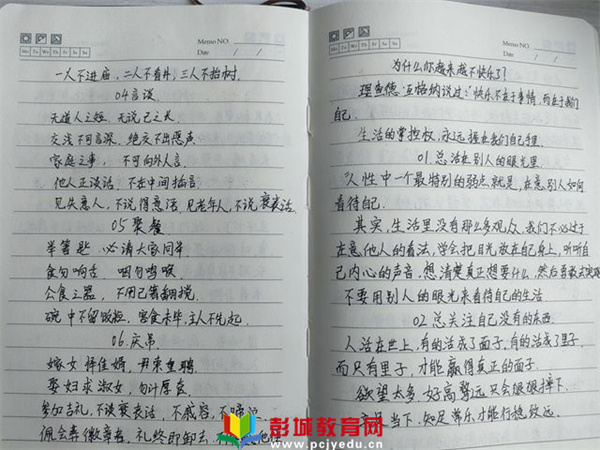 Memo NO.
Mo Tu We Th Fr Sa Su
Date / /
一人不进庙,二人不看井,三人不抱树.
04言谈.
无道人之短,无说己之长
交浅不可言深,绝交不出恶声
家庭之事,不可向外人言.
他人正谈话,不在中间插言
见失意人,不说得意话,见老年人,不说衰丧话.
05聚餐
举箸匙 必请大家同举
食勿响舌 咽勿鸣喉
公食之器,不用己箸翻搅
碗中不留饭粒,客食未毕,主人不先起.
06.庆吊.
嫁女择佳婿,毋索重聘
娶妇求淑女,勿计厚奁
参加吉礼,不谈衰丧话,不戚容,不啼
佩会葬徽章者,礼终即卸去,
Memo NO.
Mo Tu We Th Fr Sa Su
Date / /
为什么你越来越不快乐了?
理查德·瓦格纳说过:"快乐不在于事情,而在于我们
自己.
生活的掌控权,永远握在我们自己手里.
01.总活在别人的眼光里.
人性中一个最特别的弱点就是,在意别人如何
看待自己.
其实,生活里没有那么多观众,我们不必过于
在意他人的看法,学会把目光放在自己身上,听听自
己内心的声音,想清楚真正想要什么,然后勇敢去实现
不要用别人的眼光来看待自己的生活.
02总关注自己没有的东西.
人活在世上,有的活成了面子,有的活成了里子,
而只有里子,才能赢得真正的面子.
欲望太多,好高骛远,只会狠狠摔下.
当下,知足常乐,才能行稳致远.
彭城教育网
www.pcjyedu.cn